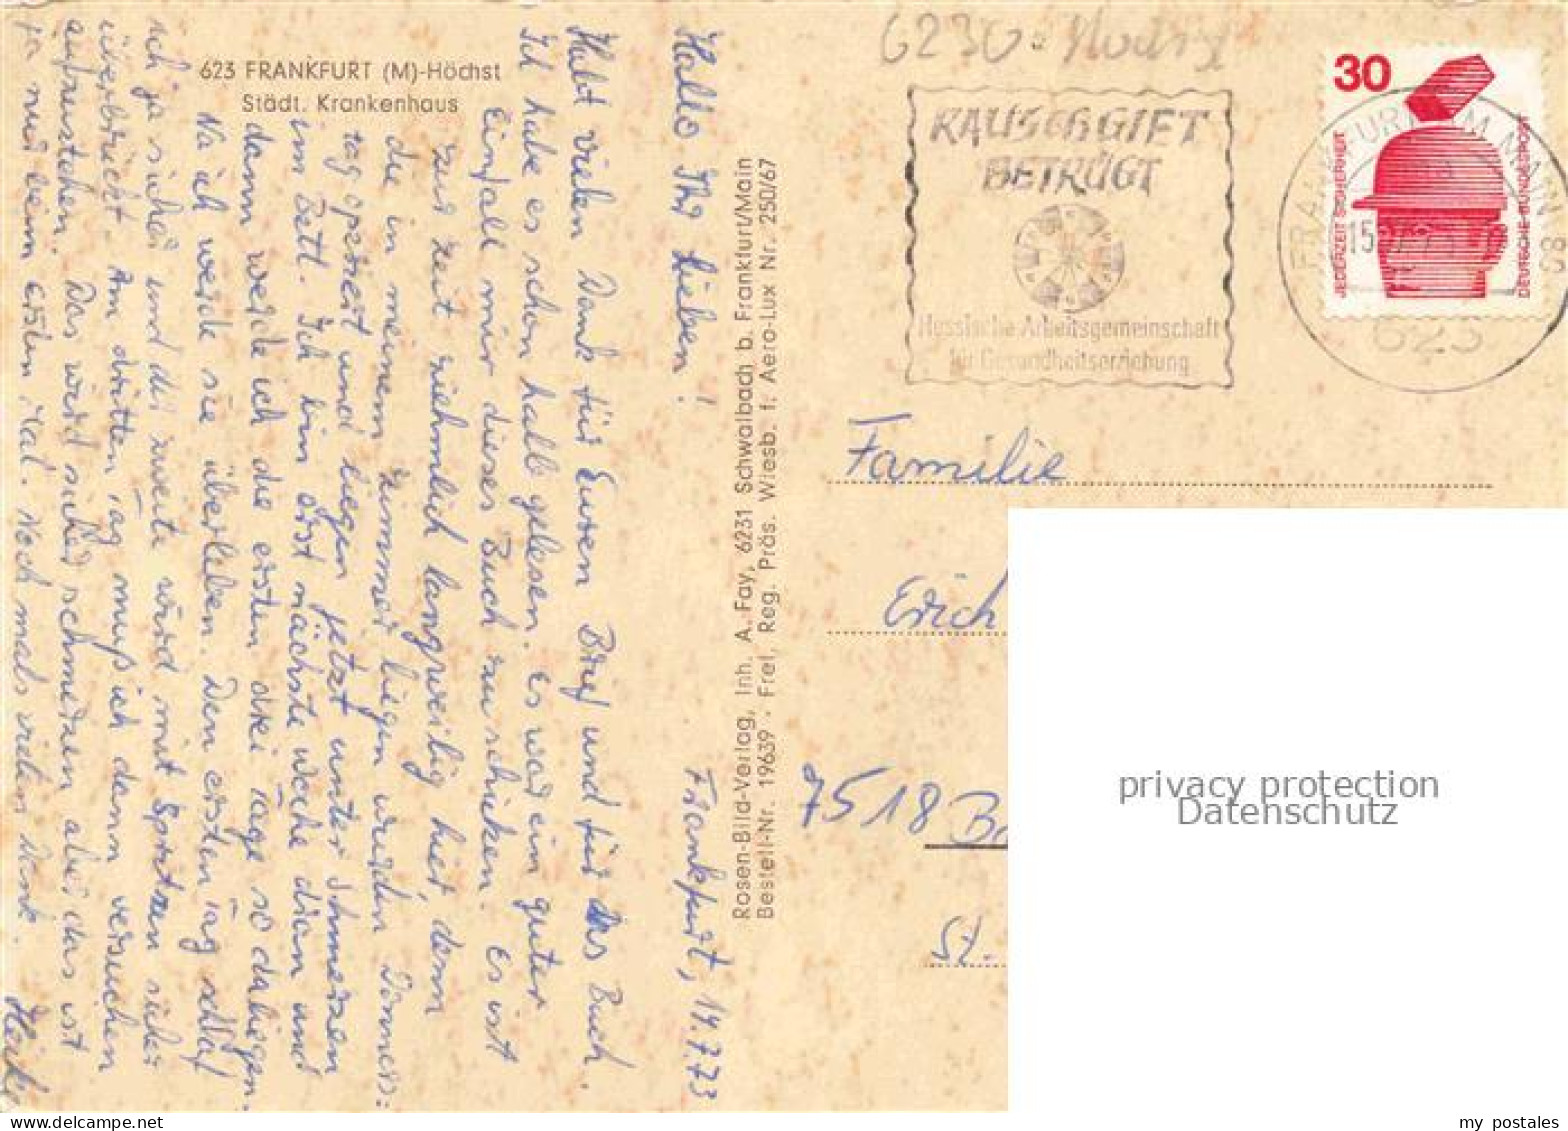 623 FRANKFURT (M)-Höchst
Städt. Krankenhaus
Hallo Ihr Lieben!
Frankfurt, 14.7.73
Habt vielen Dank für Euren Brief und für das Buch.
Ich habe es schon halb gelesen. Es war ein guter
Einfall mir dieses Buch zu schicken. Es ist
zur Zeit ziehmlich langweilig hier, denn
die in meinem Zimmer liegen wurden Donners-
tag operiert und liegen jetzt unter Schmerzen
im Bett. Ich bin erst nächste Woche dran und
dann werde ich die ersten drei Tage so daliegen.
Na ich werde sie überleben. Den ersten Tag schlaf
ich ja sicher und der zweite wird mit Spritzen sicher
überbrückt. Am dritten Tag muß ich dann versuchen
aufzustehen. Das wird sicher schmerzen aber das ist
ja nur beim ersten Mal. Nochmals vielen Dank.
Heike
Rosen-Bild-Verlag, Inh. A. Fay, 6231 Schwalbach b. Frankfurt/Main
Bestell-Nr. 19639 · Frei. Reg. Präs. Wiesb. f. Aero-Lux Nr. 250/67
6230
RAUSCHGIFT
BETRÜGT
Hessische Arbeitsgemeinschaft
für Gesundheitserziehung
30
JEDERZEIT SICHERHEIT
DEUTSCHE BUNDESPOST
FRANKFURT AM MAIN 80
623
Familie
Erich
7518 
St.
privacy protection
Datenschutz
my postales